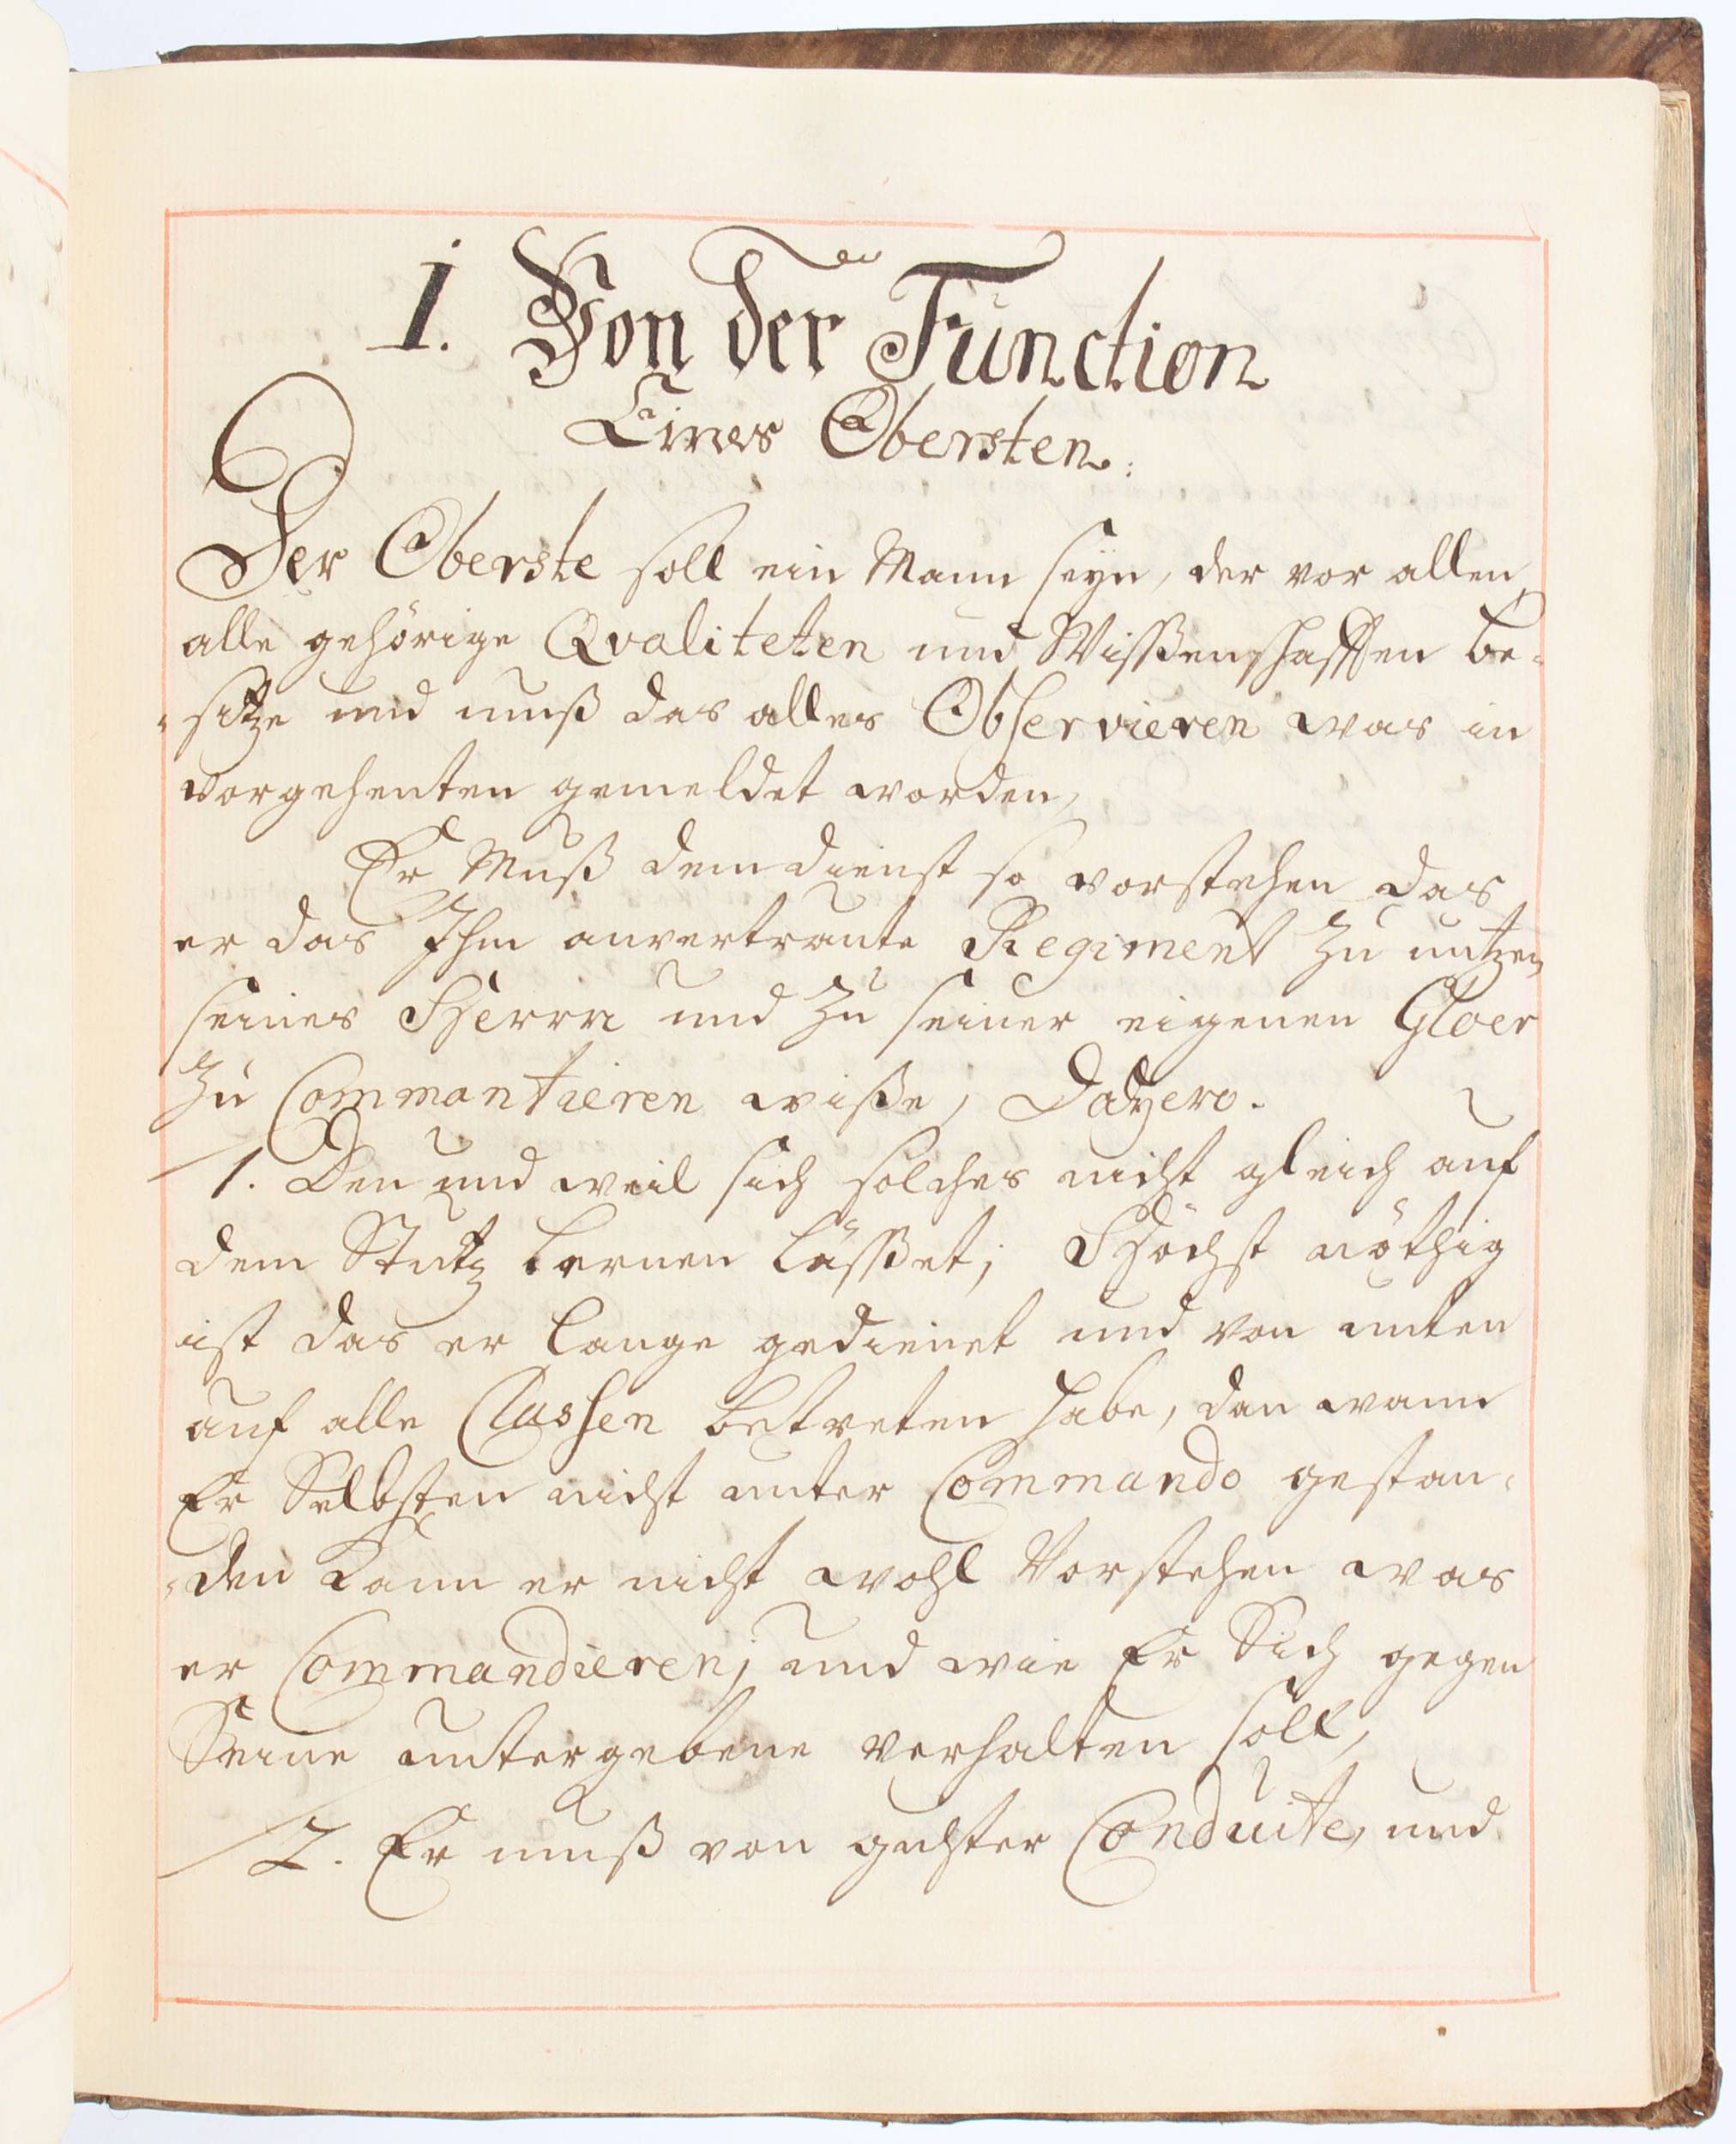 1. Von der Function
Eines Obersten.
Der Oberste soll ein Mann seyn, der vor allen
alle gehörige Qvaliteten und Wißenschafften be-
sitze und muß das alles Observieren was in
vorgehenten gemeldet worden,
Er Muß dem dienst so vorstehen das
er das Ihm anvertraute Regiment zu nutzen
seines Herrn und zu seiner eigenen Gloer
zu Commantieren wiße, Dahero.
1. Den und weil sich solches nicht gleich auf
dem Stutz lernen lässet; Höchst nöthig
ist das er lange gedienet und von unten
auf alle Classen betreten habe, dan wann
Er Selbsten nicht unter Commando gestan-
den kann er nicht wohl Vorstehen was
er Commandieren, und wie Er Sich gegen
Seine untergebene verhalten soll,
2. Er muß von guhter Conduite, und